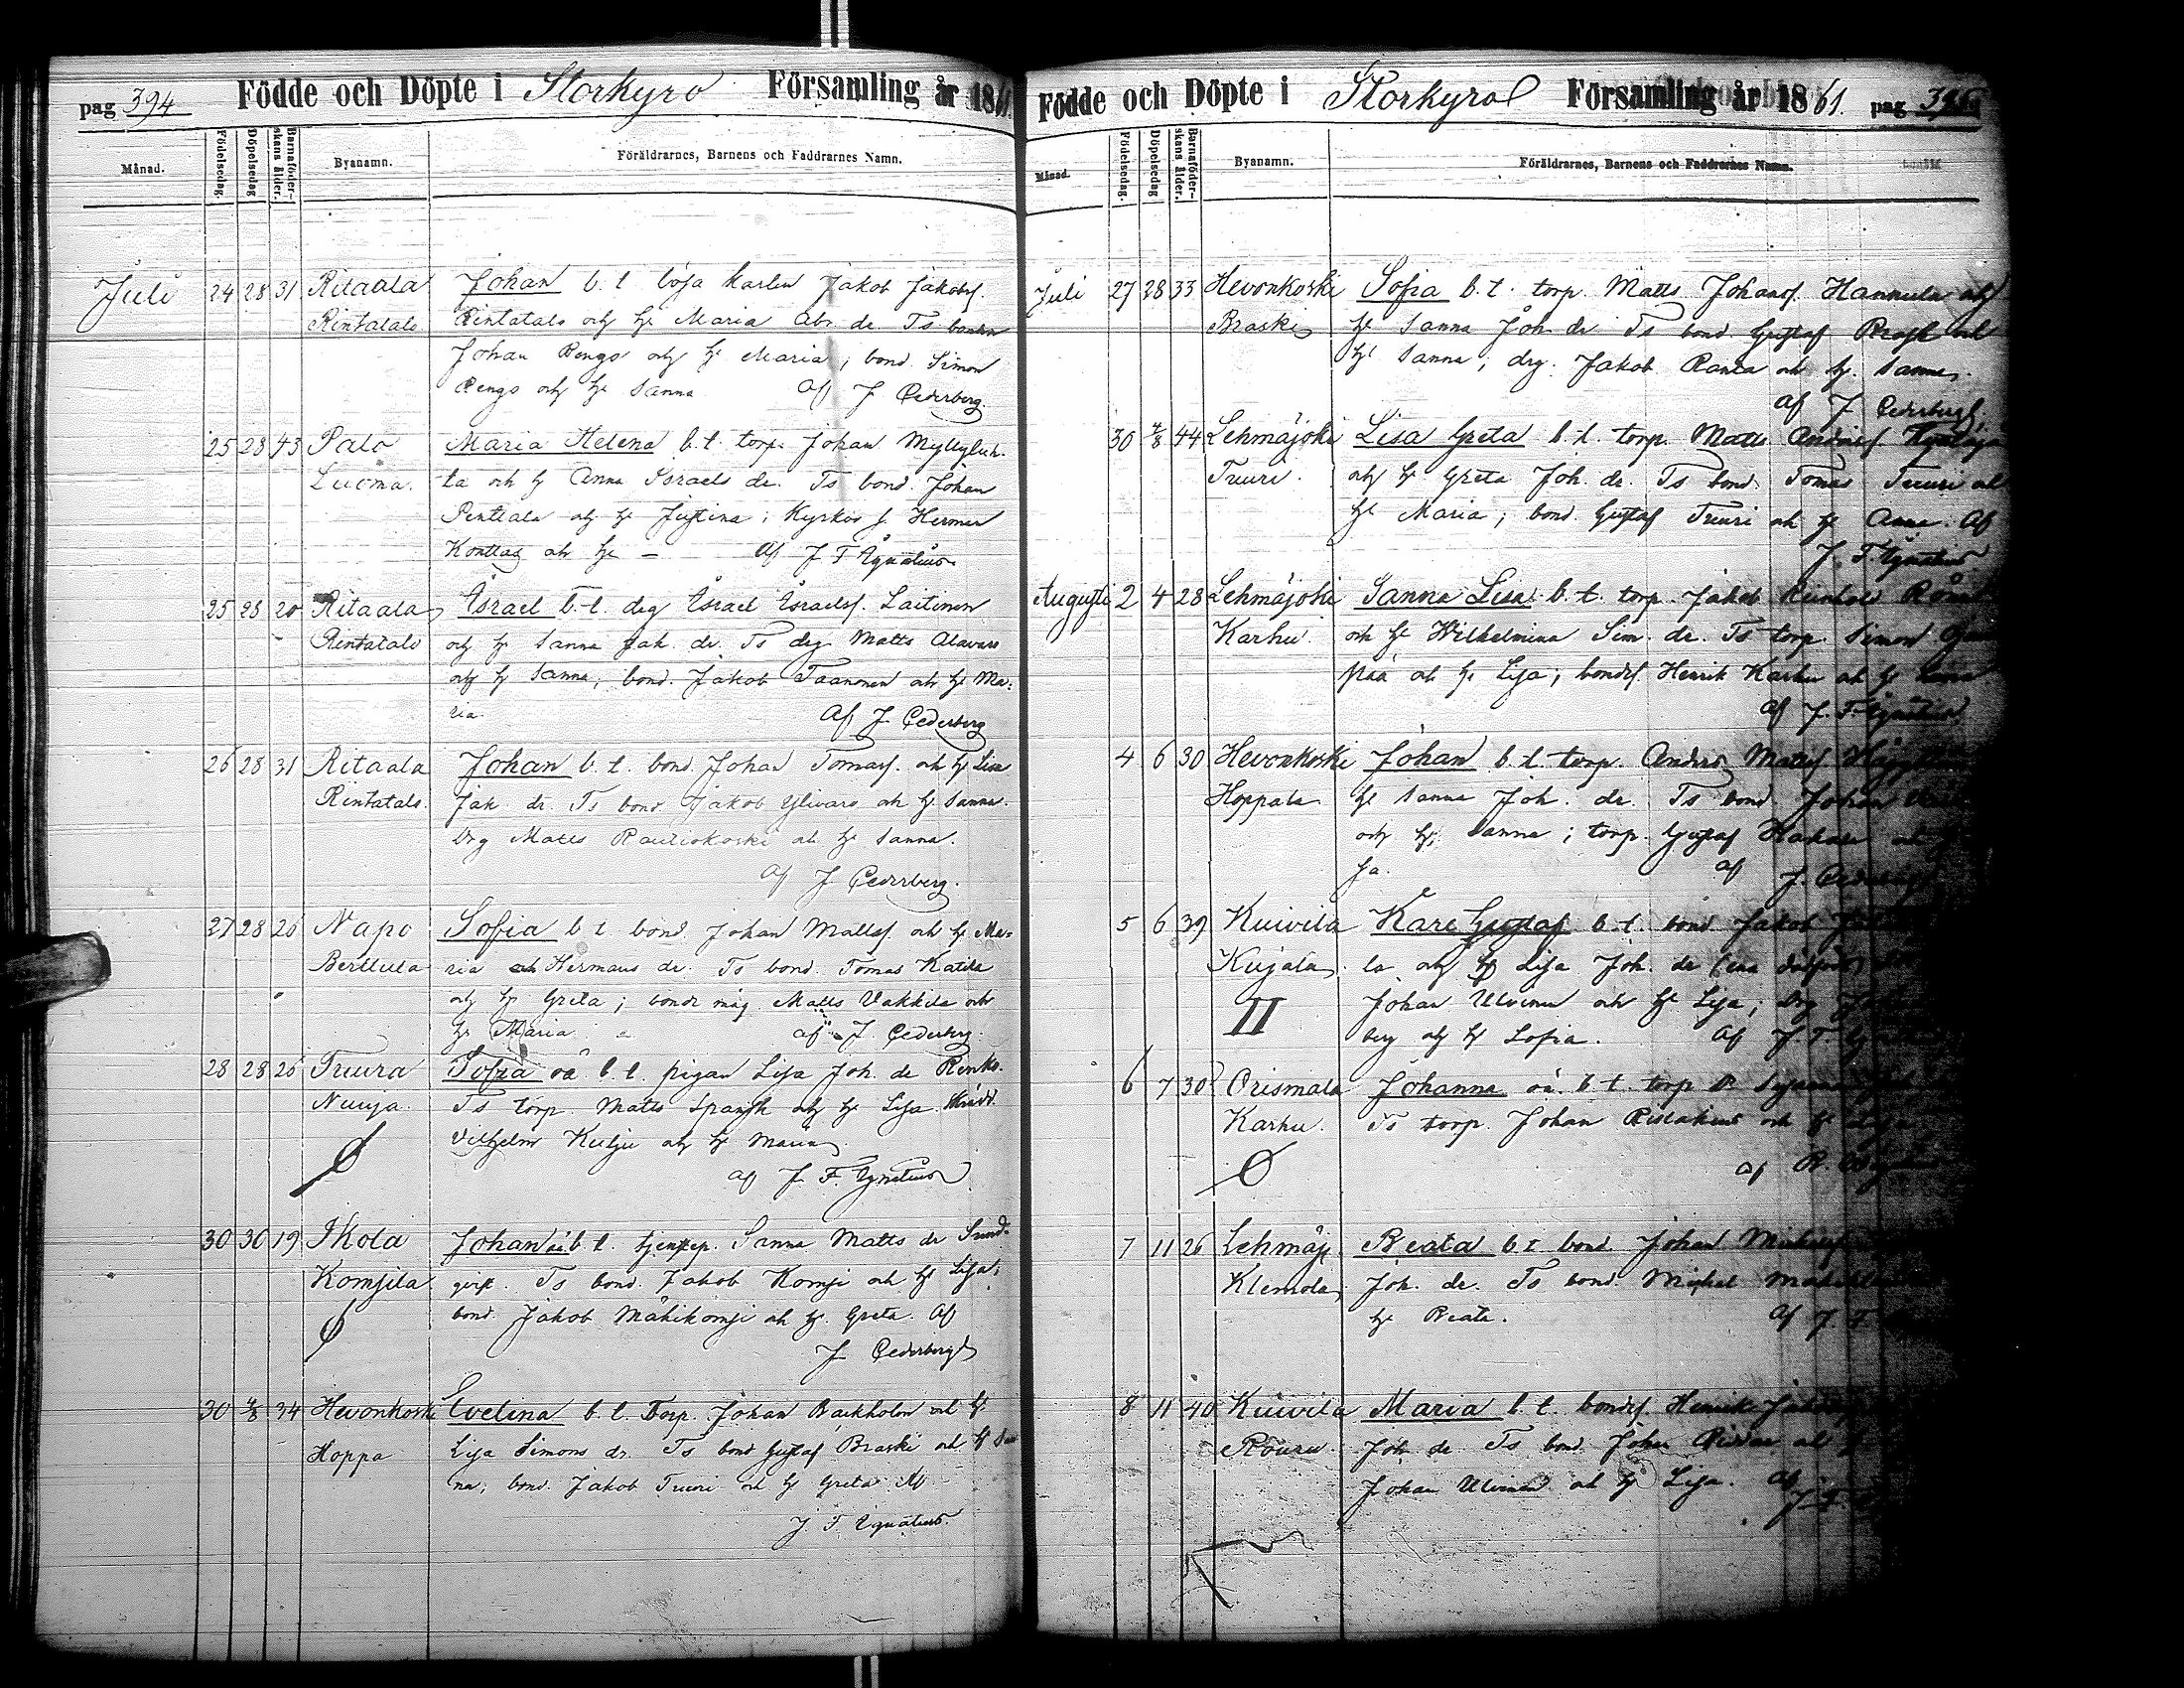 pag 394 Födde och Döpte i Storkyro Församling år 1861.
Månad. Födelsedag. Döpelsedag Barnaföderskans ålder. Byanamn. Föräldrarnes, Barnens och Faddrarnes Namn.
Juli 24 28 31 Ritaala Johan b. t. lösa karlen Jakob Jakobs.
Rintatalo Rintatalo och h. Maria Abr. dr Ts bonden
Johan Rengo och h. Maria; bond. Simon
Rengo och h. Sanna Af J Cederberg.
25 28 43 Palo Maria Helena b. t. torp. Johan Myllyluh-
Luoma. ta och h Anna Israels dr. Ts bond. Johan
Penttala och h. Justina; Kyrkov. J. Herman
Konttas och h. — Af J F Ignatius
25 28 20 Ritaala Israel b. t. drg Israel Israelss. Laitinen
Rintatalo och h Sanna Jak. dr. Ts drg Matts Alavaro
och h Sanna; bond. Jakob Taanonen och h. Ma-
ria. Af J. Cederberg
26 28 31 Ritaala Johan b. t. bond. Johan Tomass. och h Lisa
Rintatalo. Jak. dr. Ts bond Jakob Ylivaro och h. Sanna.
Drg Matts Rautiokoski och h. Sanna.
Af J. Cederberg.
27 28 26 Napo Sofia b t bond Johan Mattss. och h Ma-
Berttula ria Hermans dr. Ts bond. Tomas Katila
och h. Greta; bonde måg Matts Vakkila och
h. Maria af J. Cederberg.
28 28 26 Tuura Sofia oä b. t. pigan Lisa Joh. dr Rinta.
Nuuja. Ts torp. Matts Spangh och h Lisa. Skrädd.
Vilhelm Kulju och h Maria.
af J. F. Ignatius
30 30 19 Ikola Johan oä b t. tjenstep. Sanna Matts dr Sund-
Komsila qvist. Ts bond. Jakob Komsi och h Lisa;
bond. Jakob Mäkikomsi och h. Greta. Af
J Cederberg
30 4/8 34 Hevonkoski Evelina b. t. Torp. Johan Backholm och h
Hoppa Lisa Simons dr. Ts bond Gustaf Braski och h San
na; bond. Jakob Tuuri och h Greta Af
J F Ignatius.
Födde och Döpte i Storkyro Församling år 1861. pag 395
Månad. Födelsedag. Döpelsedag Barnaföderskans ålder. Byanamn. Föräldrarnes, Barnens och Faddrarnes Namn.
Juli 27 28 33 Hevonkoski Sofia b. t. torp. Matts Johans. Hannula och
Braski h Sanna Joh dr Ts bond Gustaf och
h Sanna; drg. Jakob Ranta och h. Sanna.
af J Cederberg
30 4/8 44 Lehmäjoki Lisa Greta b. t. torp. Matts Anderss.
Tuuri. och h Greta Joh. dr. Ts bond. Tomas Tuuri och
h Maria; bond. Gustaf Tuuri och h Anna. Af
J. F. Ignatius
Augusti 2 4 28 Lehmäjoki Sanna Lisa b. t. torp. Jakob Reinhold
Karhu. och h Wilhelmina Sim. dr. Ts torp. Simon
pää och h Lisa; bondes. Henrik Karhu och h Sanna
af J. F. Ignatius
4 6 30 Hevonkoski Johan b. t. torp. Anders Matts
Hoppala h Sanna Joh. dr. Ts bond. Johan
och h; Sanna; torp. Gustaf
sa. af J. Cederberg
5 6 39 Kuivila Karl Gustaf b. t. bond Jakob
Kujala. la och h Lisa Joh. dr
II Johan Ulvinen och h Lisa; Drg
berg och h Sofia. Af J. F.
6 7 30 Orismala Johanna oä. b t. torp Dr
Karhu. Ts torp. Johan och h
af
7 11 26 Lehmäj. Beata b t bond Johan
Klemola Joh. dr. Ts bond. Michel
h Beata. Af J F
8 11 40 Kuivila Maria b. t. bondes Henrik
Rouru. Joh dr Ts bond Johan och
Johan Ulvinen och h Lisa. Af
J F